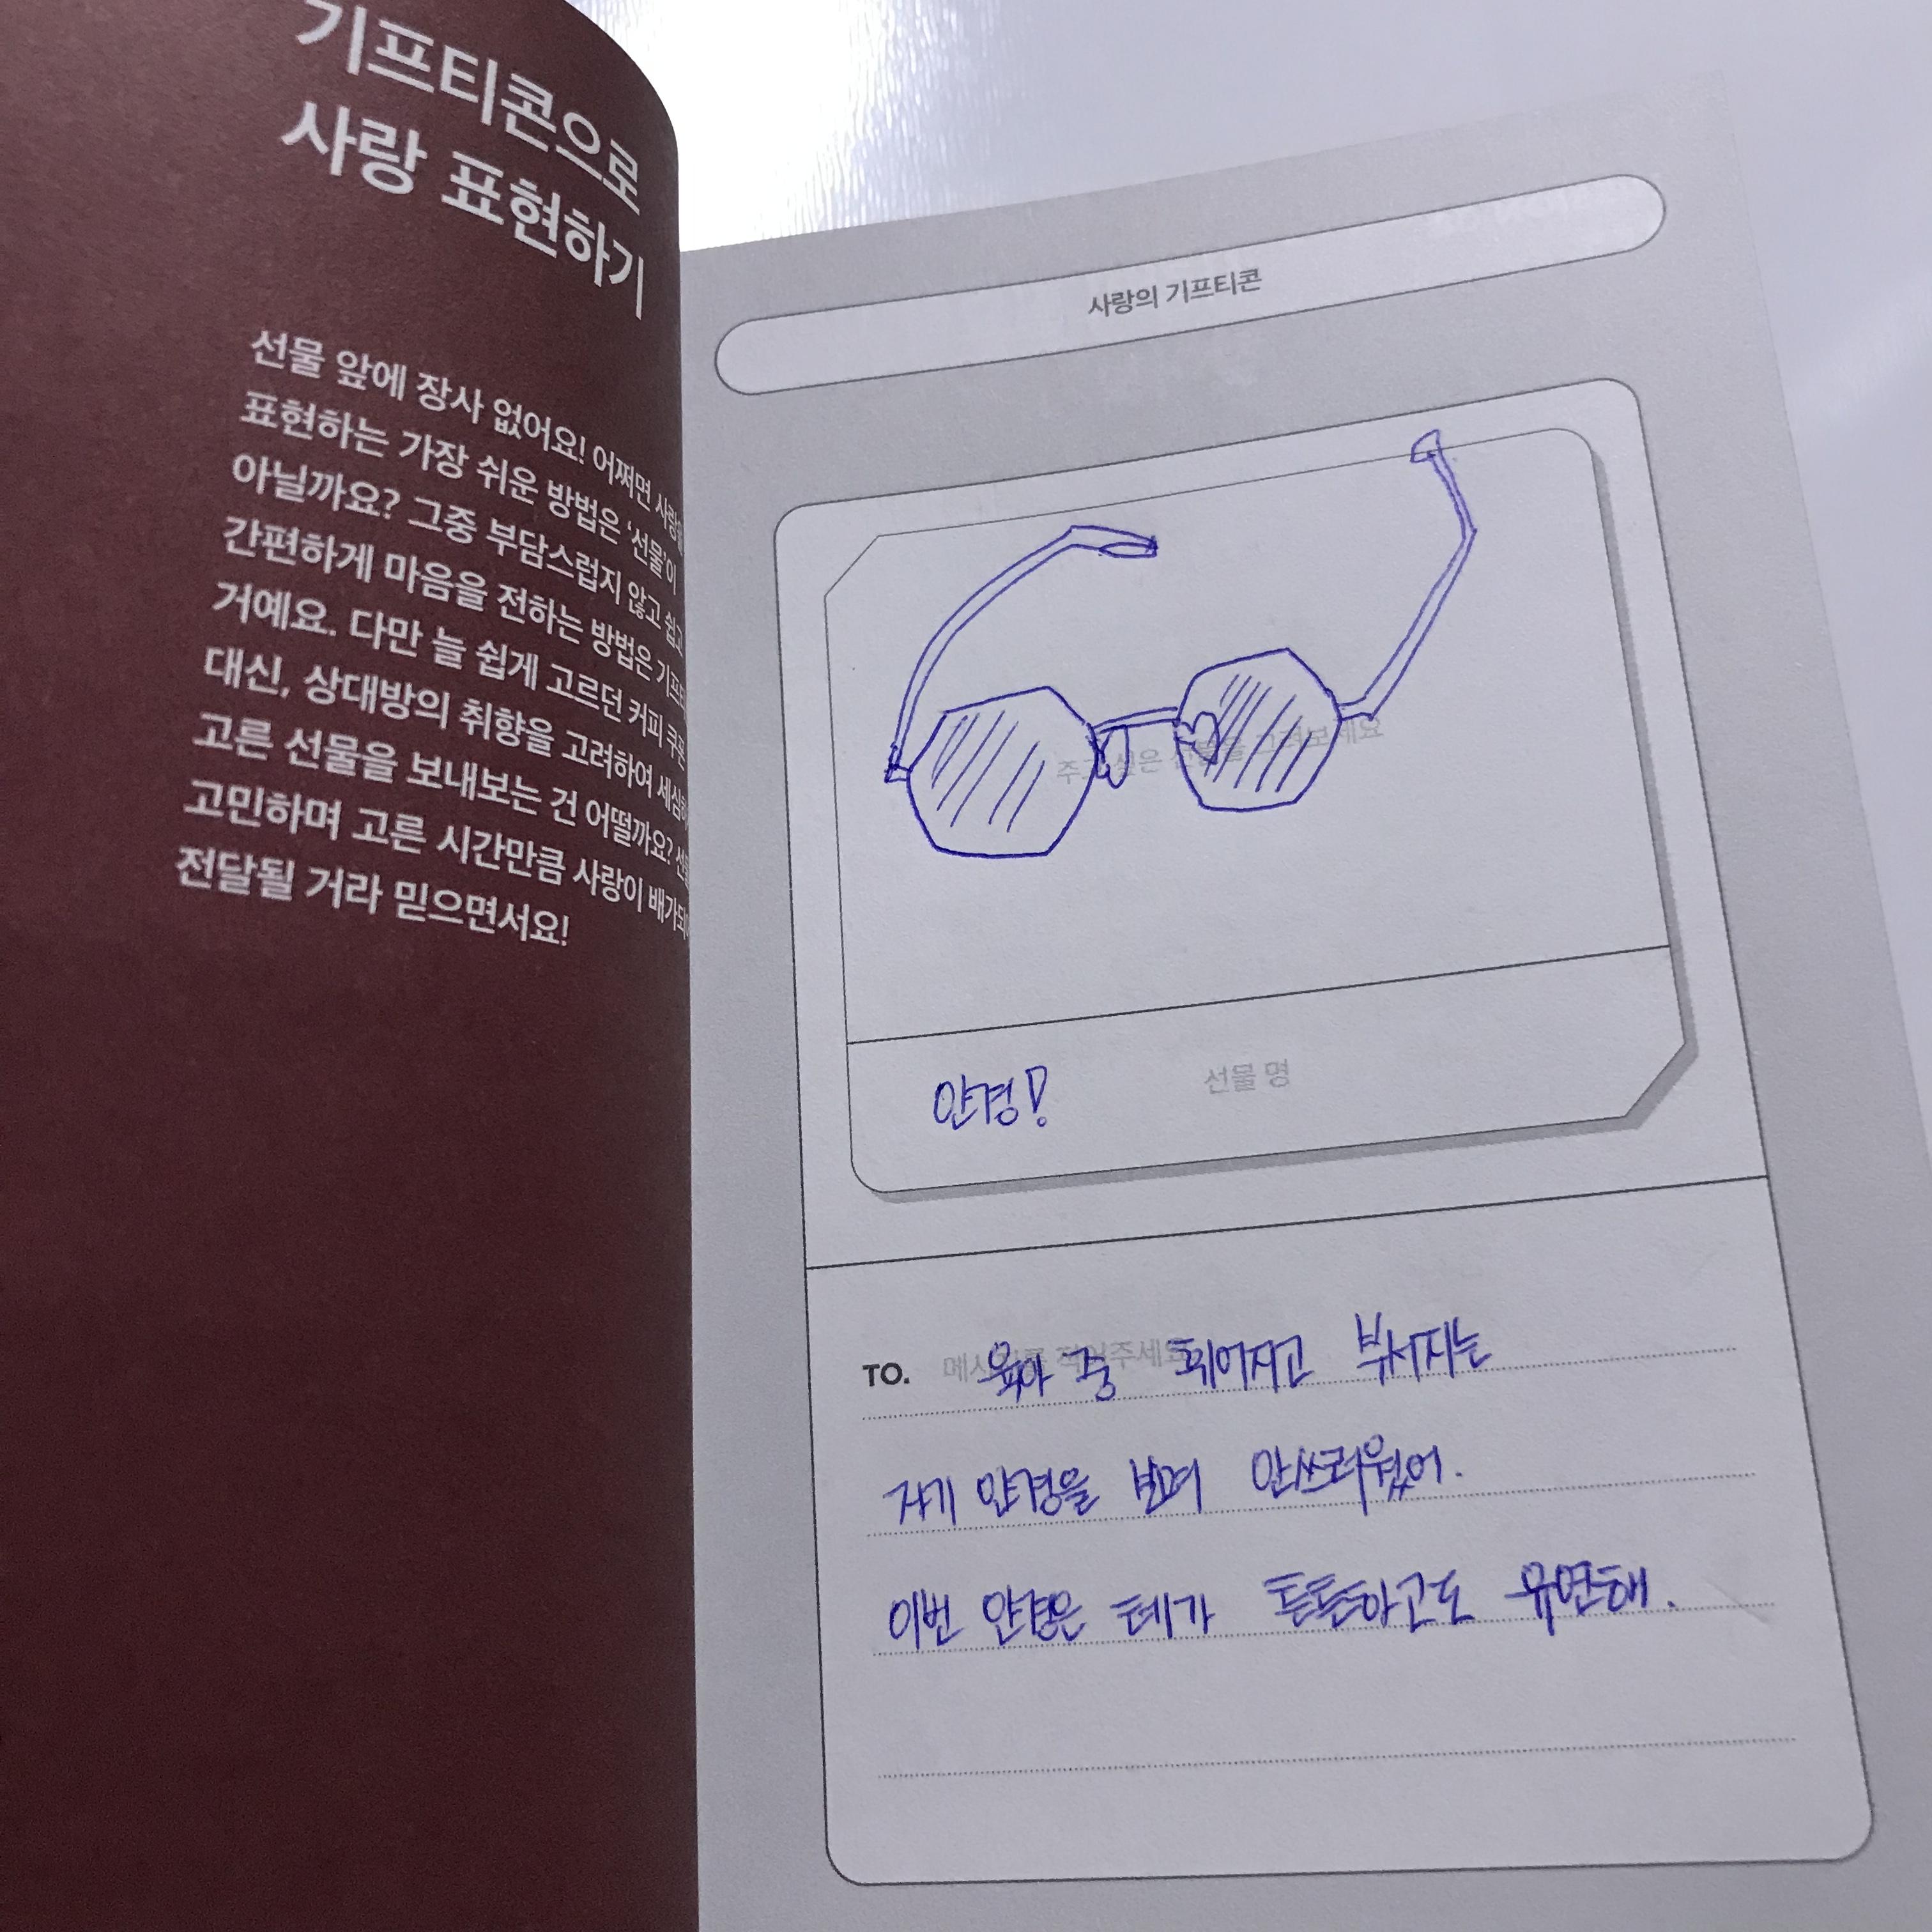 기프티콘으로
사랑 표현하기
선물 앞에 장사 없어요! 어쩌면 사랑을
표현하는 가장 쉬운 방법은 ‘선물’이
아닐까요? 그중 부담스럽지 않고 쉽고
간편하게 마음을 전하는 방법은
거예요. 다만 늘 쉽게 고르던 커피 쿠폰
대신, 상대방의 취향을 고려하여
고른 선물을 보내보는 건 어떨까요?
고민하며 고른 시간만큼 사랑이
전달될 거라 믿으면서요!
사랑의 기프티콘
주고 싶은 선물을 그려보세요
안경!
선물 명
TO. 메시지를 적어주세요
육아 중 휘어지고 부서지는
자기 안경을 보며 안쓰러웠어.
이번 안경은 테가 튼튼하고도 유연해.